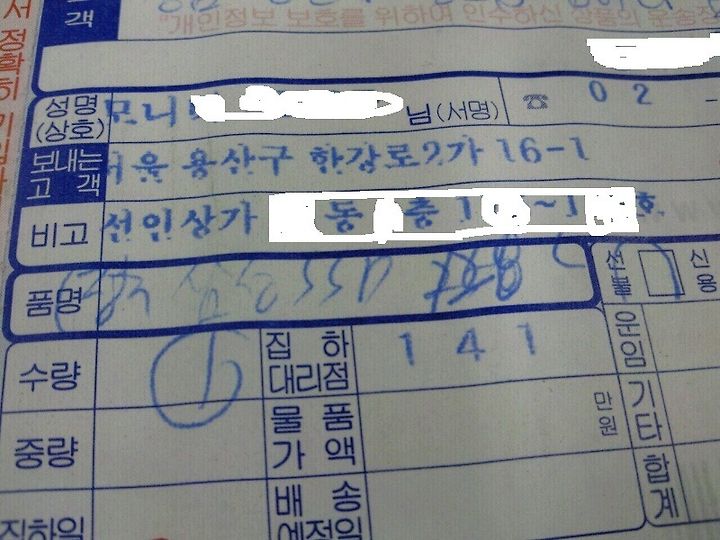 객
"개인정보 보호를 위하여 인수하신 상품의 운송장
서 정확히 기입
성명 모니 님(서명) ☎ 02 -
(상호)
보내는 서울 용산구 한강로2가 16-1
고 객
비고 선인상가 동 층 1 ~1 호
품명 SSD 선불 신용
수량 1 집하 141 운임
대리점
중량 물품 만원 기타
가액
집하일 배송 합계
예정일